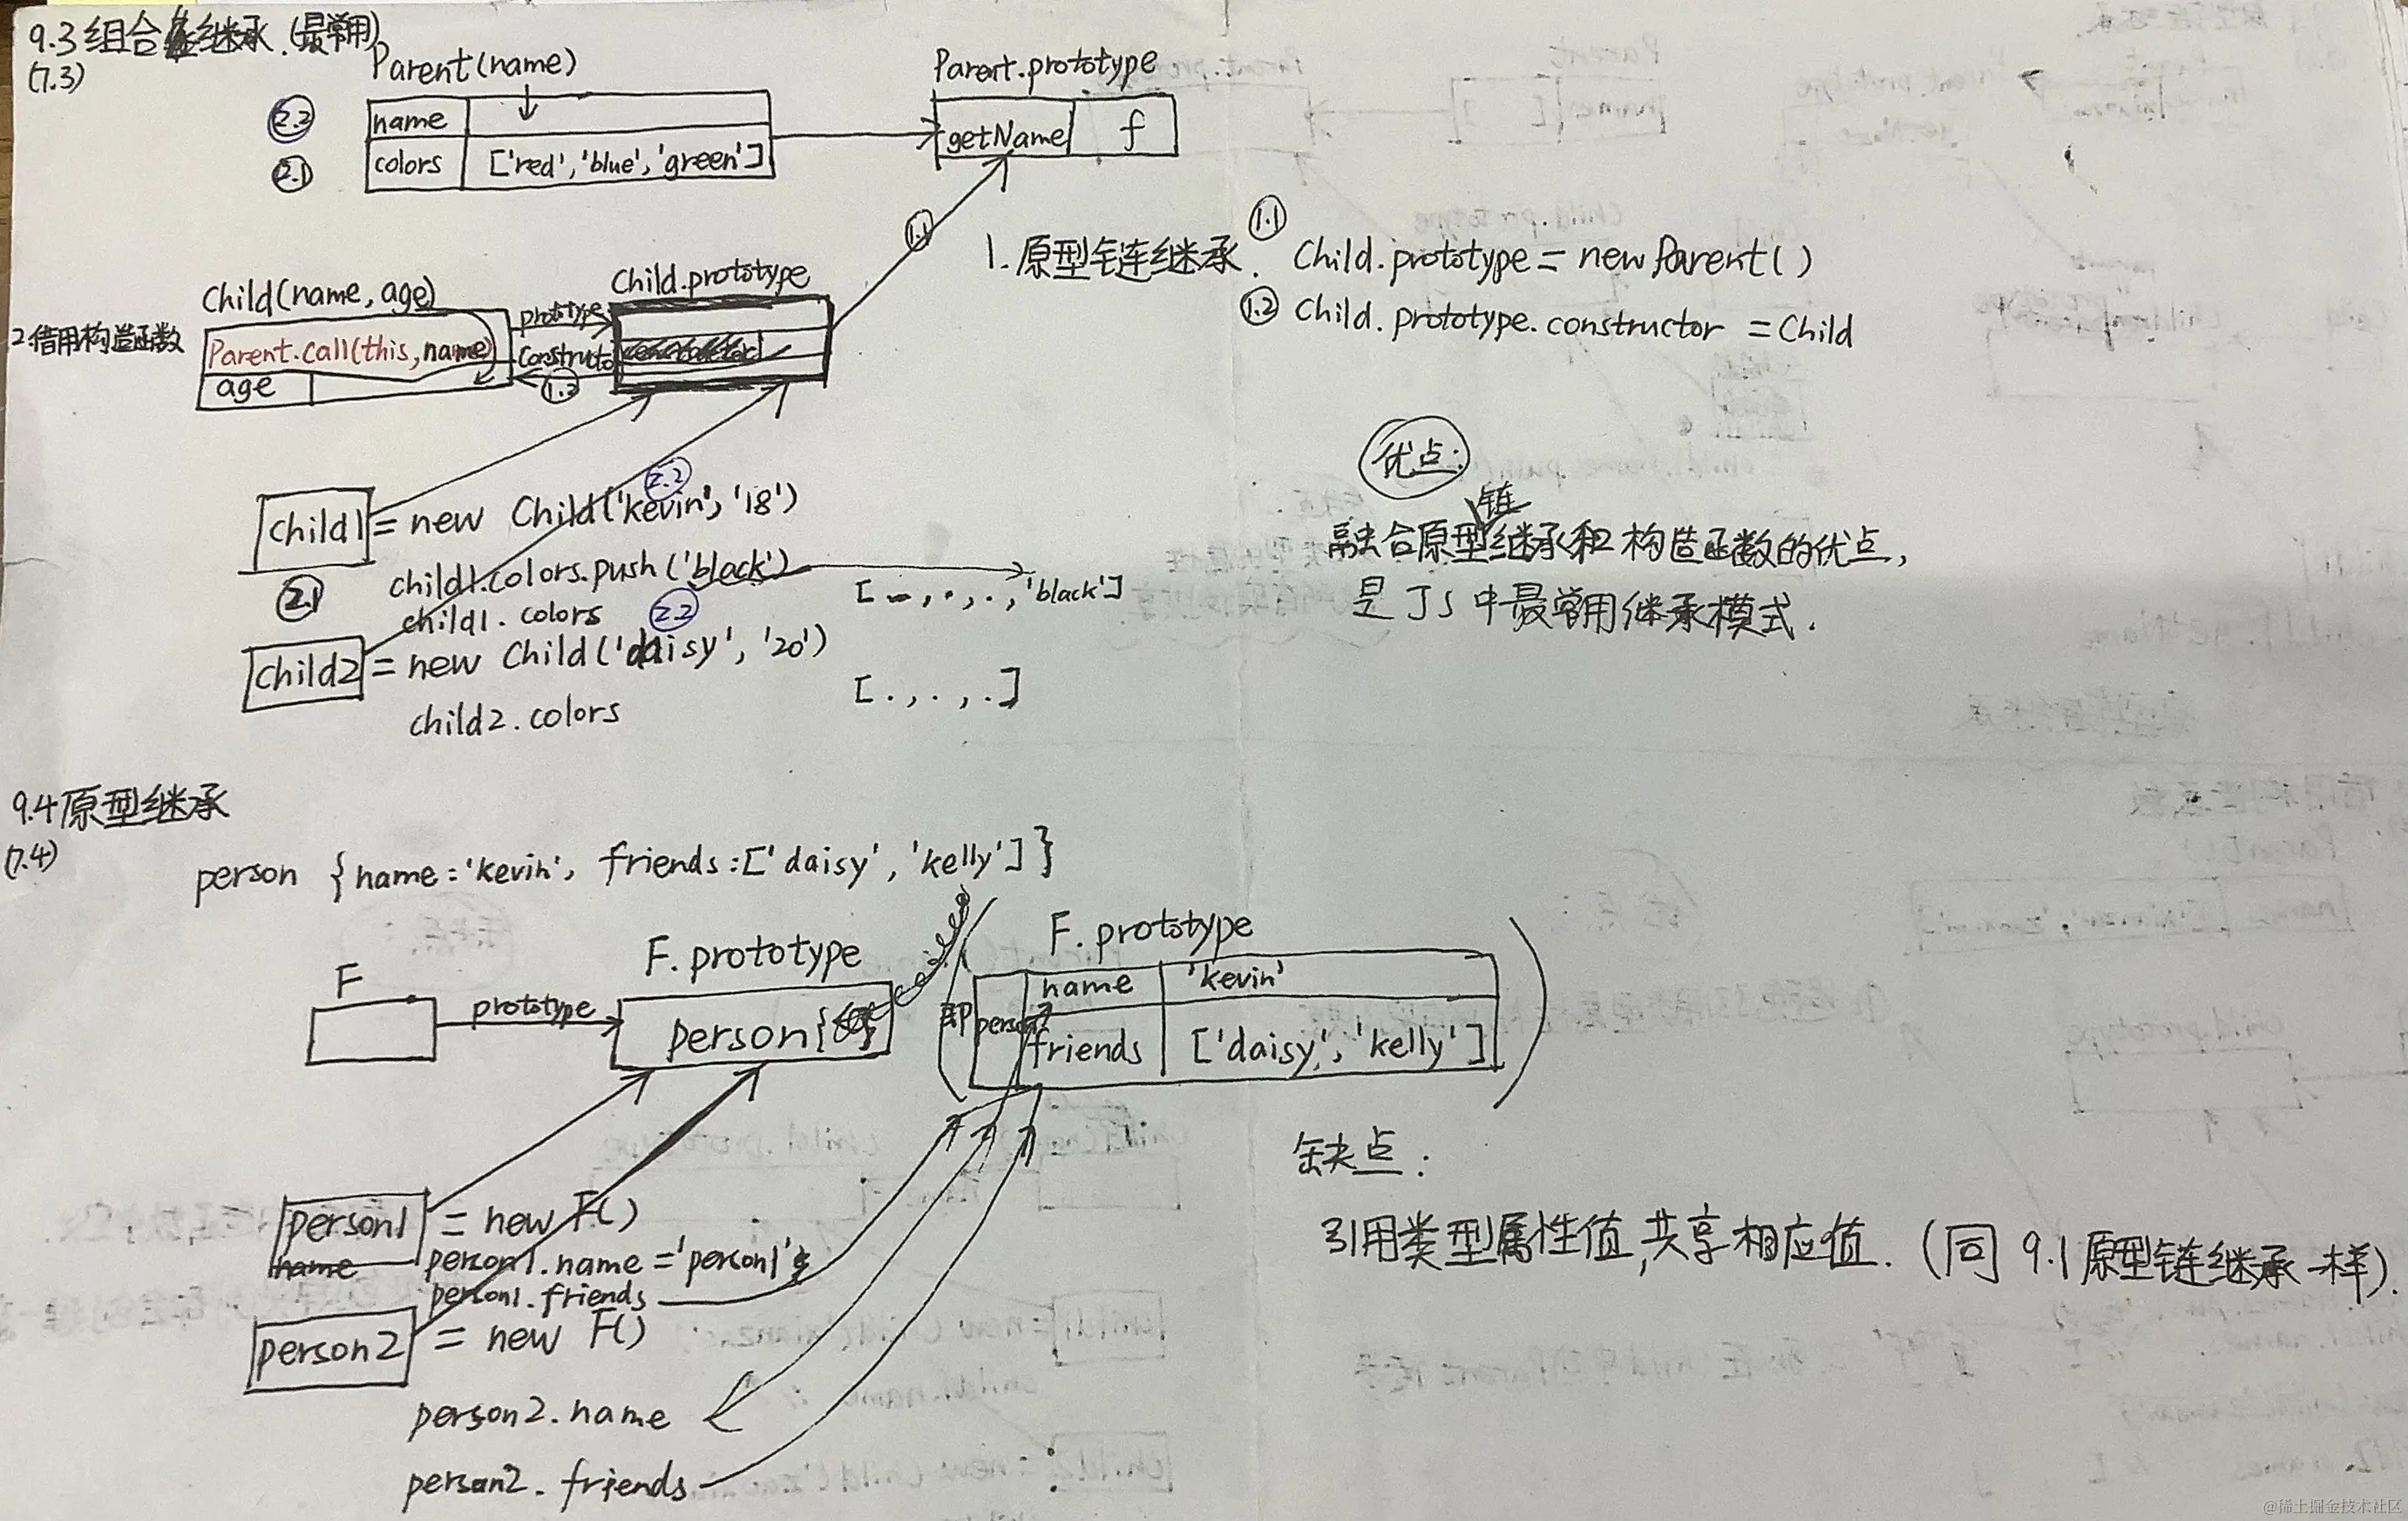 9.3 组合继承.(最常用)
(7.3)
Parent(name)
Parent.prototype
2.2
name
getName f
2.1
colors ['red','blue','green']
1.1
1.原型链继承.
1.1 Child.prototype = new Parent()
1.2 Child.prototype.constructor = Child
Child(name, age)
Child.prototype
prototype
2.借用构造函数
Parent.call(this,name)
constructor
1.2
age
优点:
链
融合原型继承和构造函数的优点,
是JS中最常用继承模式.
2.2
child1 = new Child('kevin', '18')
child1.colors.push('black')
[ . , . , . , 'black']
2.1
child1.colors
2.2
child2 = new Child('daisy', '20')
[ . , . , . ]
child2.colors
9.4 原型继承
(7.4)
person {name:'kevin', friends:['daisy', 'kelly']}
F
F.prototype
F.prototype
prototype
person{
即
person
name 'kevin'
friends ['daisy', 'kelly']
缺点:
引用类型属性值,共享相应值.(同9.1原型链继承一样).
person1 = new F()
name
person1.name = 'person1'
person1.friends
person2 = new F()
person2.name
person2.friends
@稀土掘金技术社区